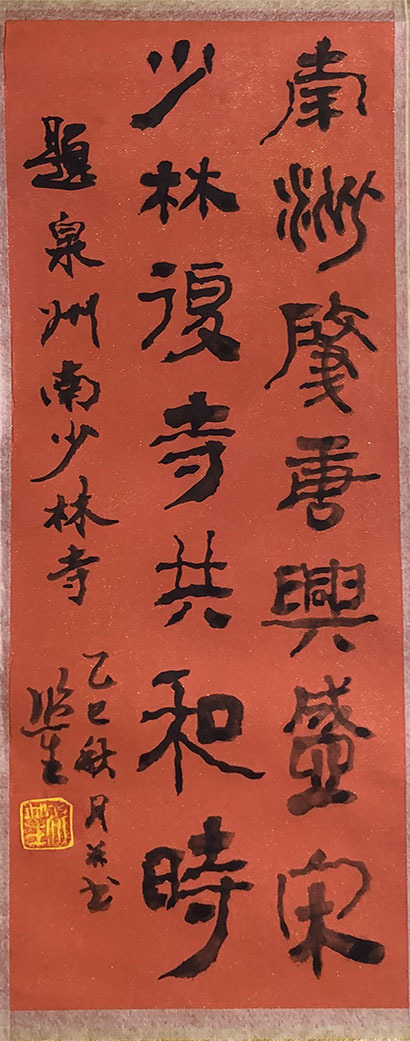 南洲肇唐興盛宋
少林復寺共和時
題泉州南少林寺
乙巳秋月并书